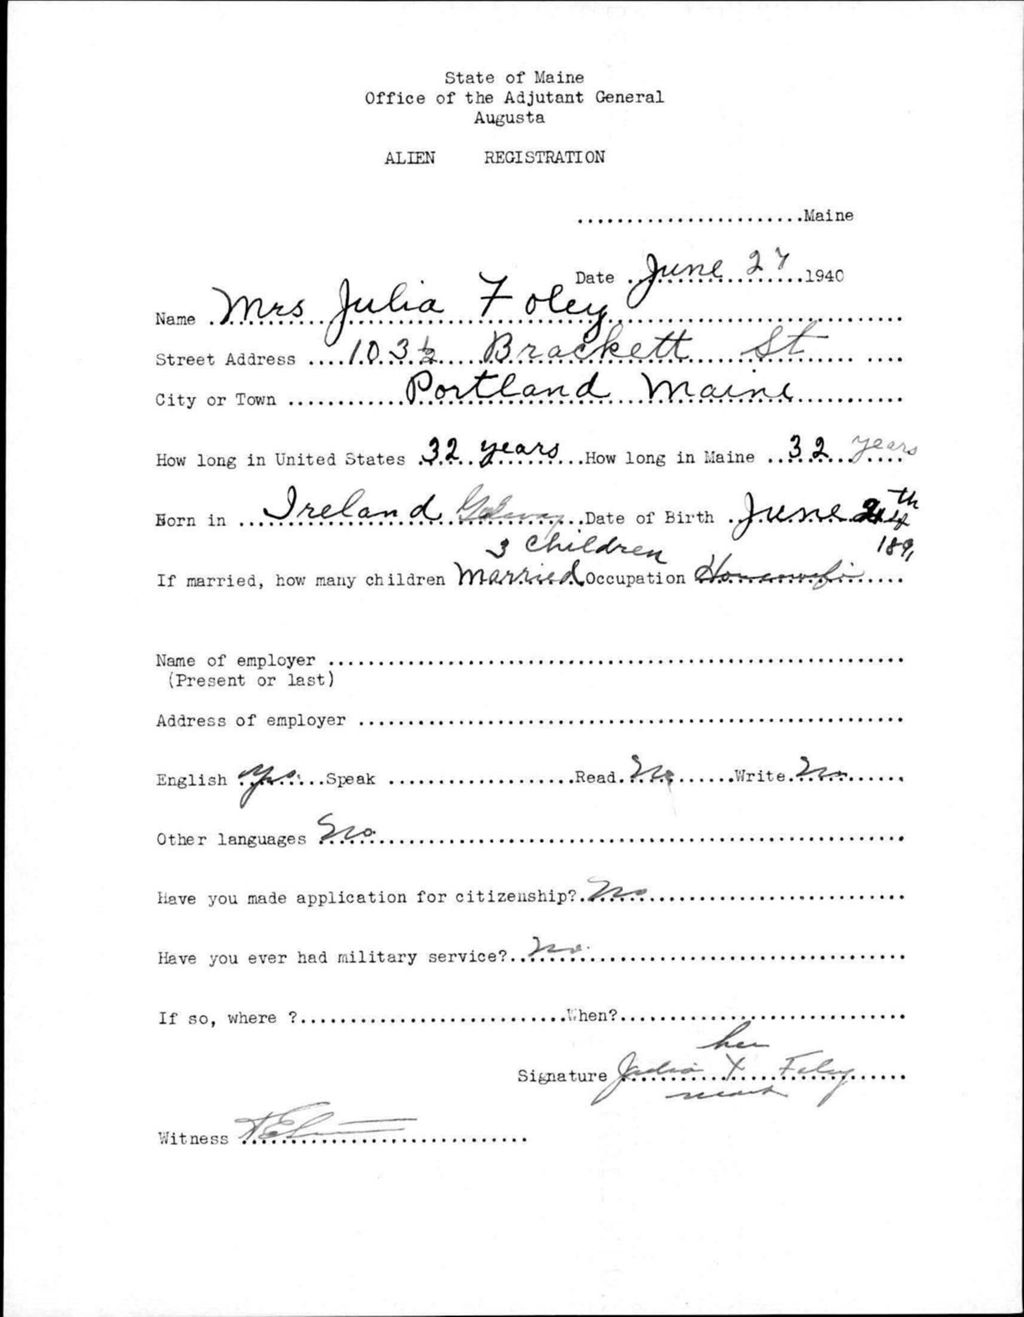 State of Maine
Office of the Adjutant General
Augusta
ALIEN REGISTRATION
.......................Maine
Date June 27 1940
Name Mrs Julia Foley
Street Address 103½ Brackett St
City or Town Portland Maine
How long in United States 32 years How long in Maine 32 years
Born in Ireland Galway Date of Birth June 24th
3 children 189
If married, how many children Married Occupation Housewife
Name of employer
(Present or last)
Address of employer
English Yes. Speak Read. No Write. No
Other languages No.
Have you made application for citizenship? No
Have you ever had military service? No.
If so, where ? When?
her
Signature Julia X Foley
mark
Witness